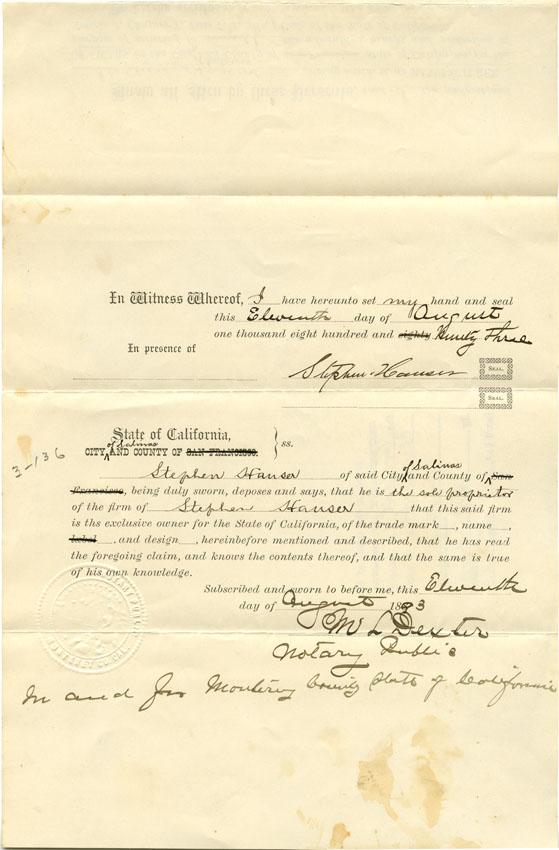 Know all Men by these Presents,
In Witness Whereof, I have hereunto set my hand and seal
this Elwenth day of August
one thousand eight hundred and eighty Ninety Three
In presence of
Stephen Hanser
SEAL.
SEAL.
State of California,
of Salinas
CITY, AND COUNTY OF SAN FRANCISCO. } ss.
3-136
Stephen Hanser of said City of Salinas and County of San
Francisco, being duly sworn, deposes and says, that he is the sole proprietor
of the firm of Stephen Hanser that this said firm
is ths exclusive owner for the State of California, of the trade mark , name ,
label , and design , hereinbefore mentioned and described, that he has read
the foregoing claim, and knows the contents thereof, and that the same is true
of his own knowledge.
Subscribed and sworn to before me, this Elwenth
day of August 1893
M L Dexter
Notary Public
In and for Monterey County State of California